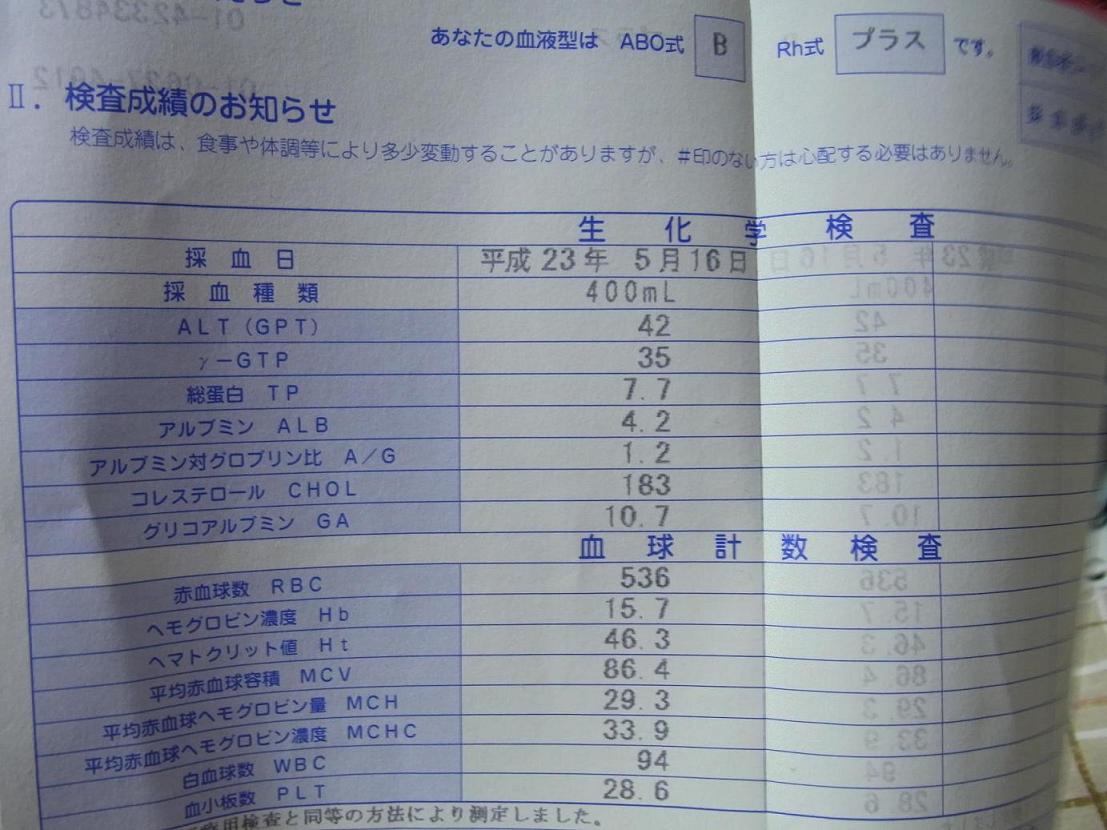 あなたの血液型は ABO式 B Rh式 プラス です。
Ⅱ. 検査成績のお知らせ
検査成績は、食事や体調等により多少変動することがありますが、#印のない方は心配する必要はありません。
生化学検査
採血日 平成23年 5月16日
採血種類 400mL
ALT(GPT) 42
γ-GTP 35
総蛋白 TP 7.7
アルブミン ALB 4.2
アルブミン対グロブリン比 A/G 1.2
コレステロール CHOL 183
グリコアルブミン GA 10.7
血球計数検査
赤血球数 RBC 536
ヘモグロビン濃度 Hb 15.7
ヘマトクリット値 Ht 46.3
平均赤血球容積 MCV 86.4
平均赤血球ヘモグロビン量 MCH 29.3
平均赤血球ヘモグロビン濃度 MCHC 33.9
白血球数 WBC 94
血小板数 PLT 28.6
検査と同等の方法により測定しました。